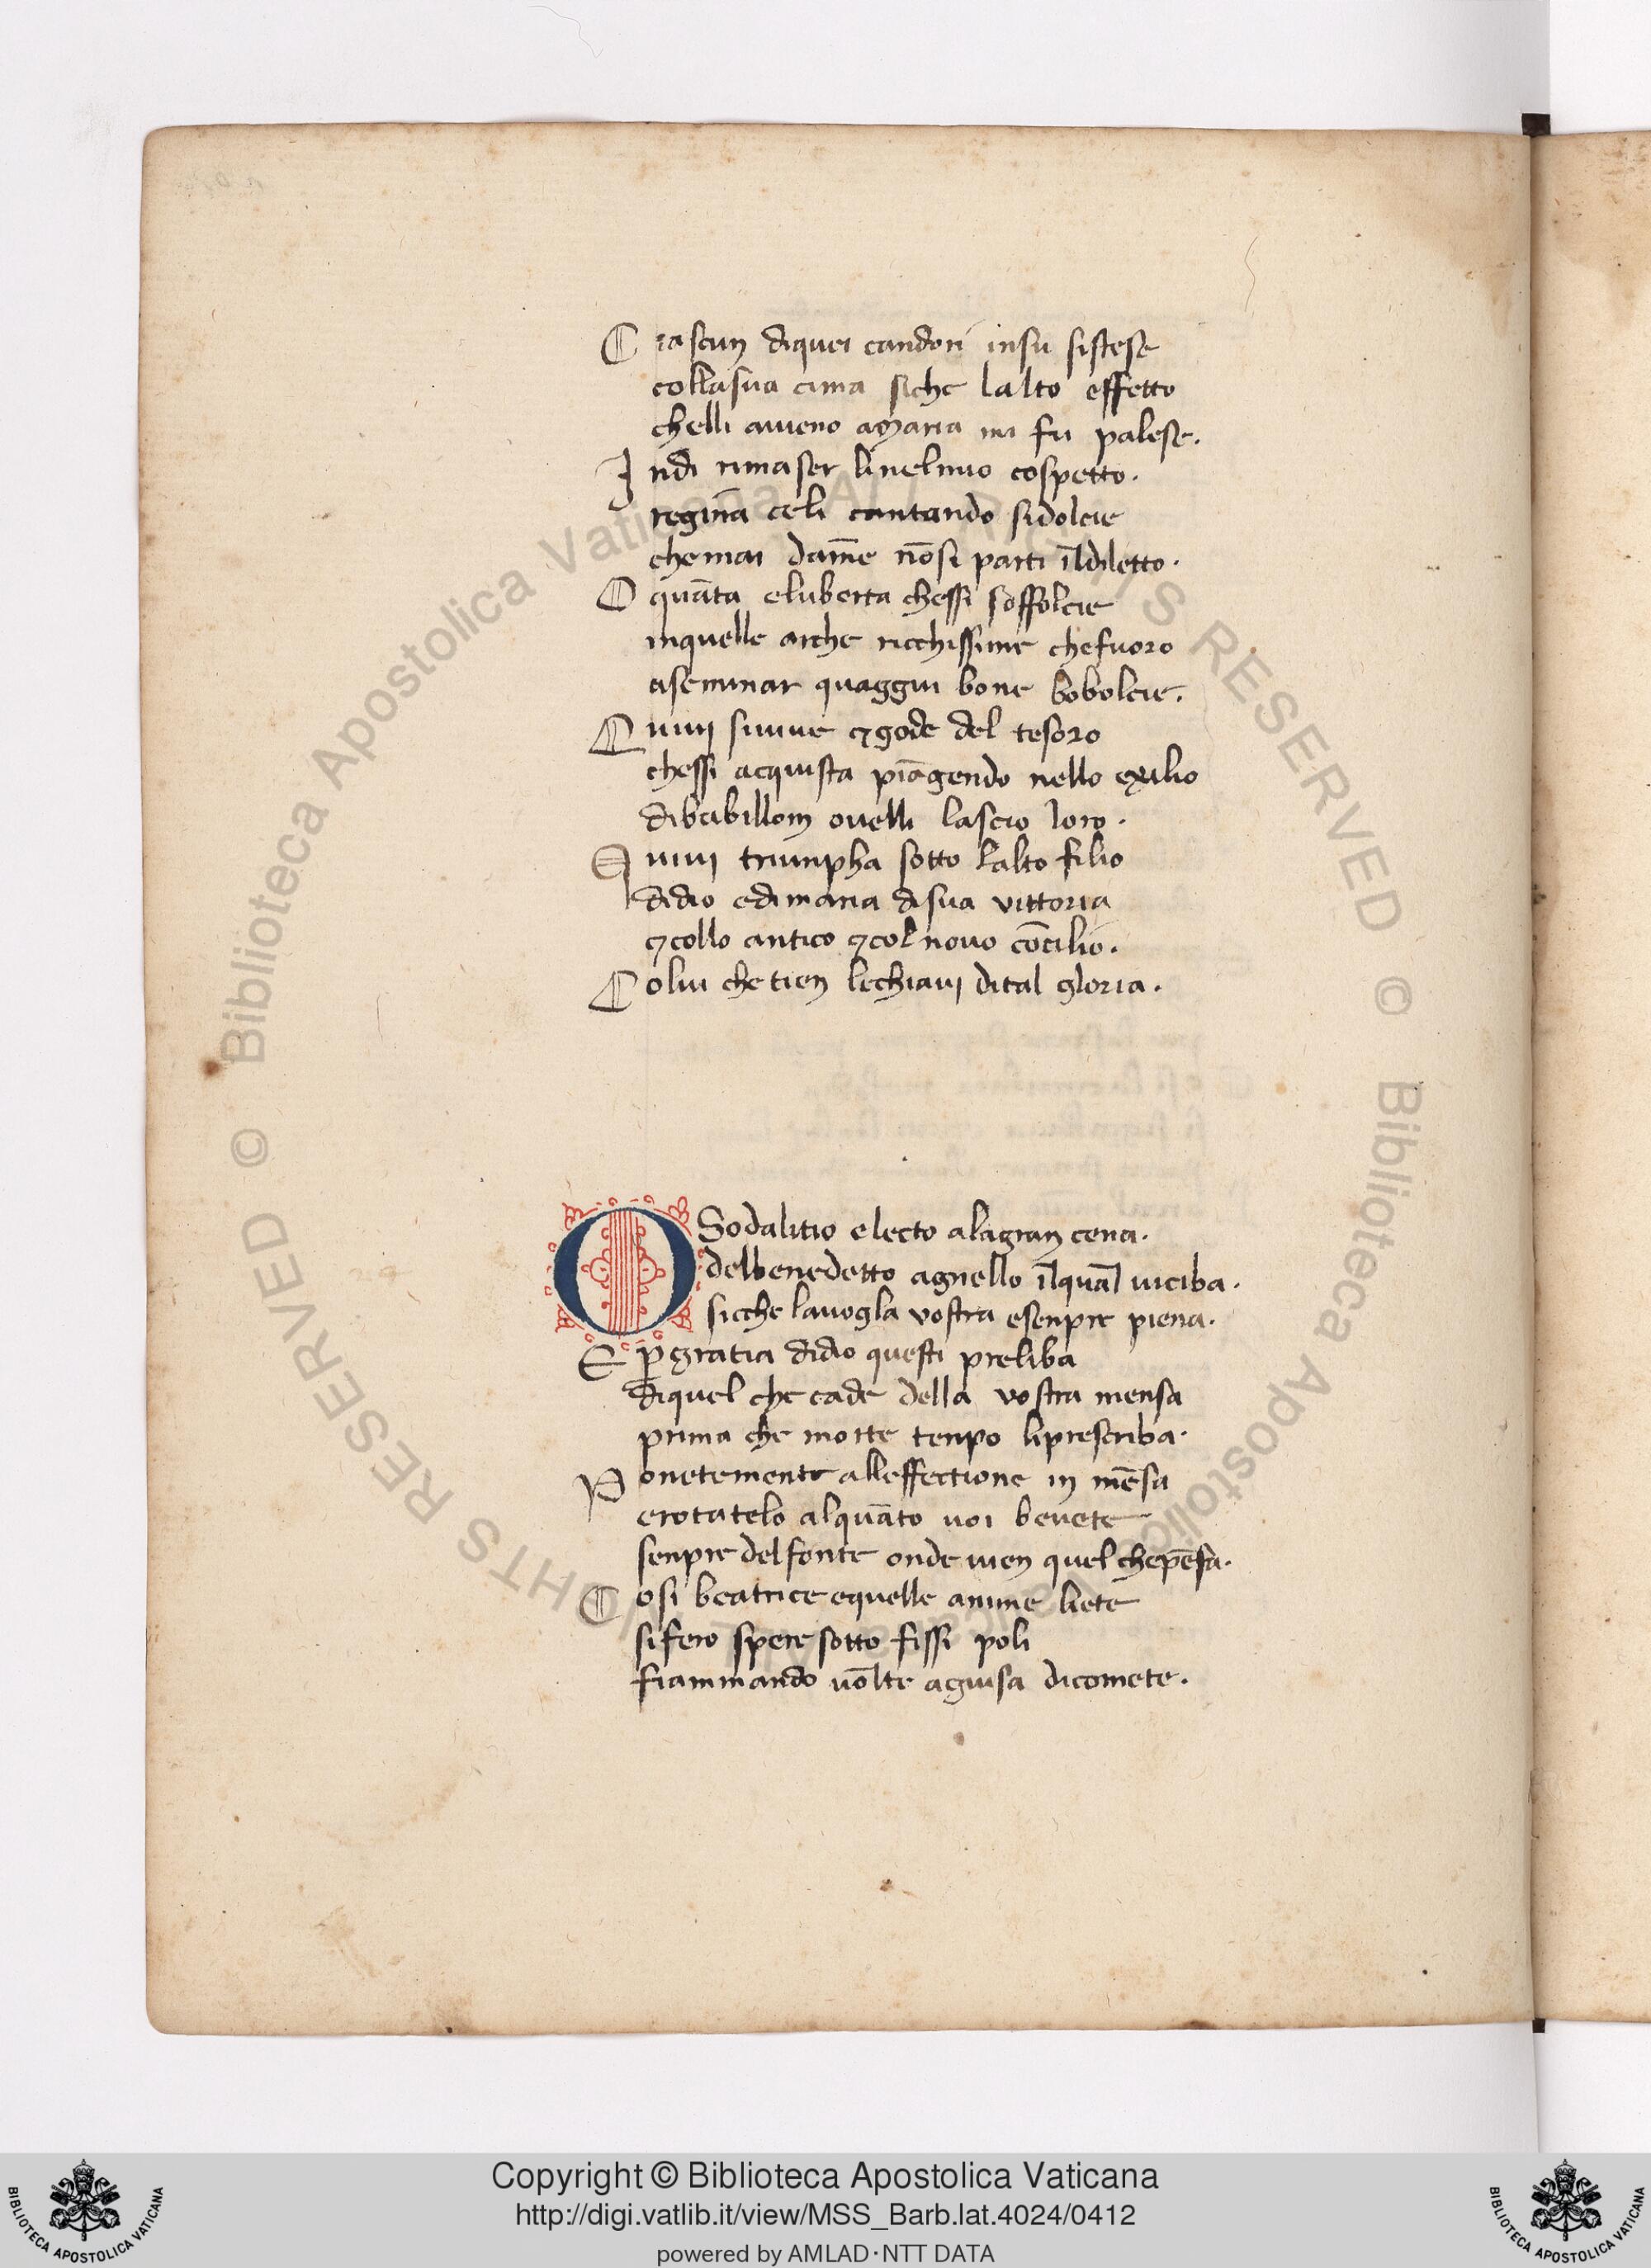 C iascun diquei candori insu sistese
collasua cima siche lalto effetto
chelli aueno amaria mi fu palese.
I ndi rimaser linelmio cospetto.
reginā celi cantando sidolcie
chemai dam̄e nōsi parti īldiletto.
O quāta eluberta chessi soffolcie
inquelle arche ricchissime chefuoro
aseminar quaggiu bone bobolcie.
Q uiuj siuiue ⁊gode del tesoro
chessi acquista piāgendo nello exilio
dibabillom ouelli lascio loro.
Q uiuj triumpha sotto lalto filio
didio edimaria disua vittoria
⁊collo antico ⁊col nouo cōcilio.
C olui chetien lechiauj dital gloria.
O Sodalitio electo alagran cena.
delbenedetto agnello īlqual uiciba.
sicche lauogla vostra esenpre piena.
E p̄gratia didio questi preliba
diquel che cade della vostra mensa
prima che morte tenpo liprescriba.
P onetemente alleffectione in mēsa
erotatelo alquāto uoi beuete
senpre delfonte onde uien quel chepēsa.
C osi beatrice equelle anime liete
sifero spere sotto fissi poli
fiammando uōlte aguisa dicomete.
© Biblioteca Apostolica Vaticana ALL RIGHTS RESERVED © Biblioteca Apostolica Vaticana ALL RIGHTS RESERVED
Copyright © Biblioteca Apostolica Vaticana
http://digi.vatlib.it/view/MSS_Barb.lat.4024/0412
powered by AMLAD·NTT DATA
BIBLIOTECA APOSTOLICA VATICANA
BIBLIOTECA APOSTOLICA VATICANA